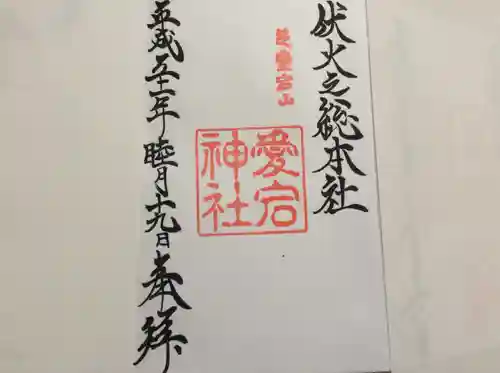 伏火之総本社
芝愛宕山
愛宕
神社
平成廿一年睦月十九日奉拝